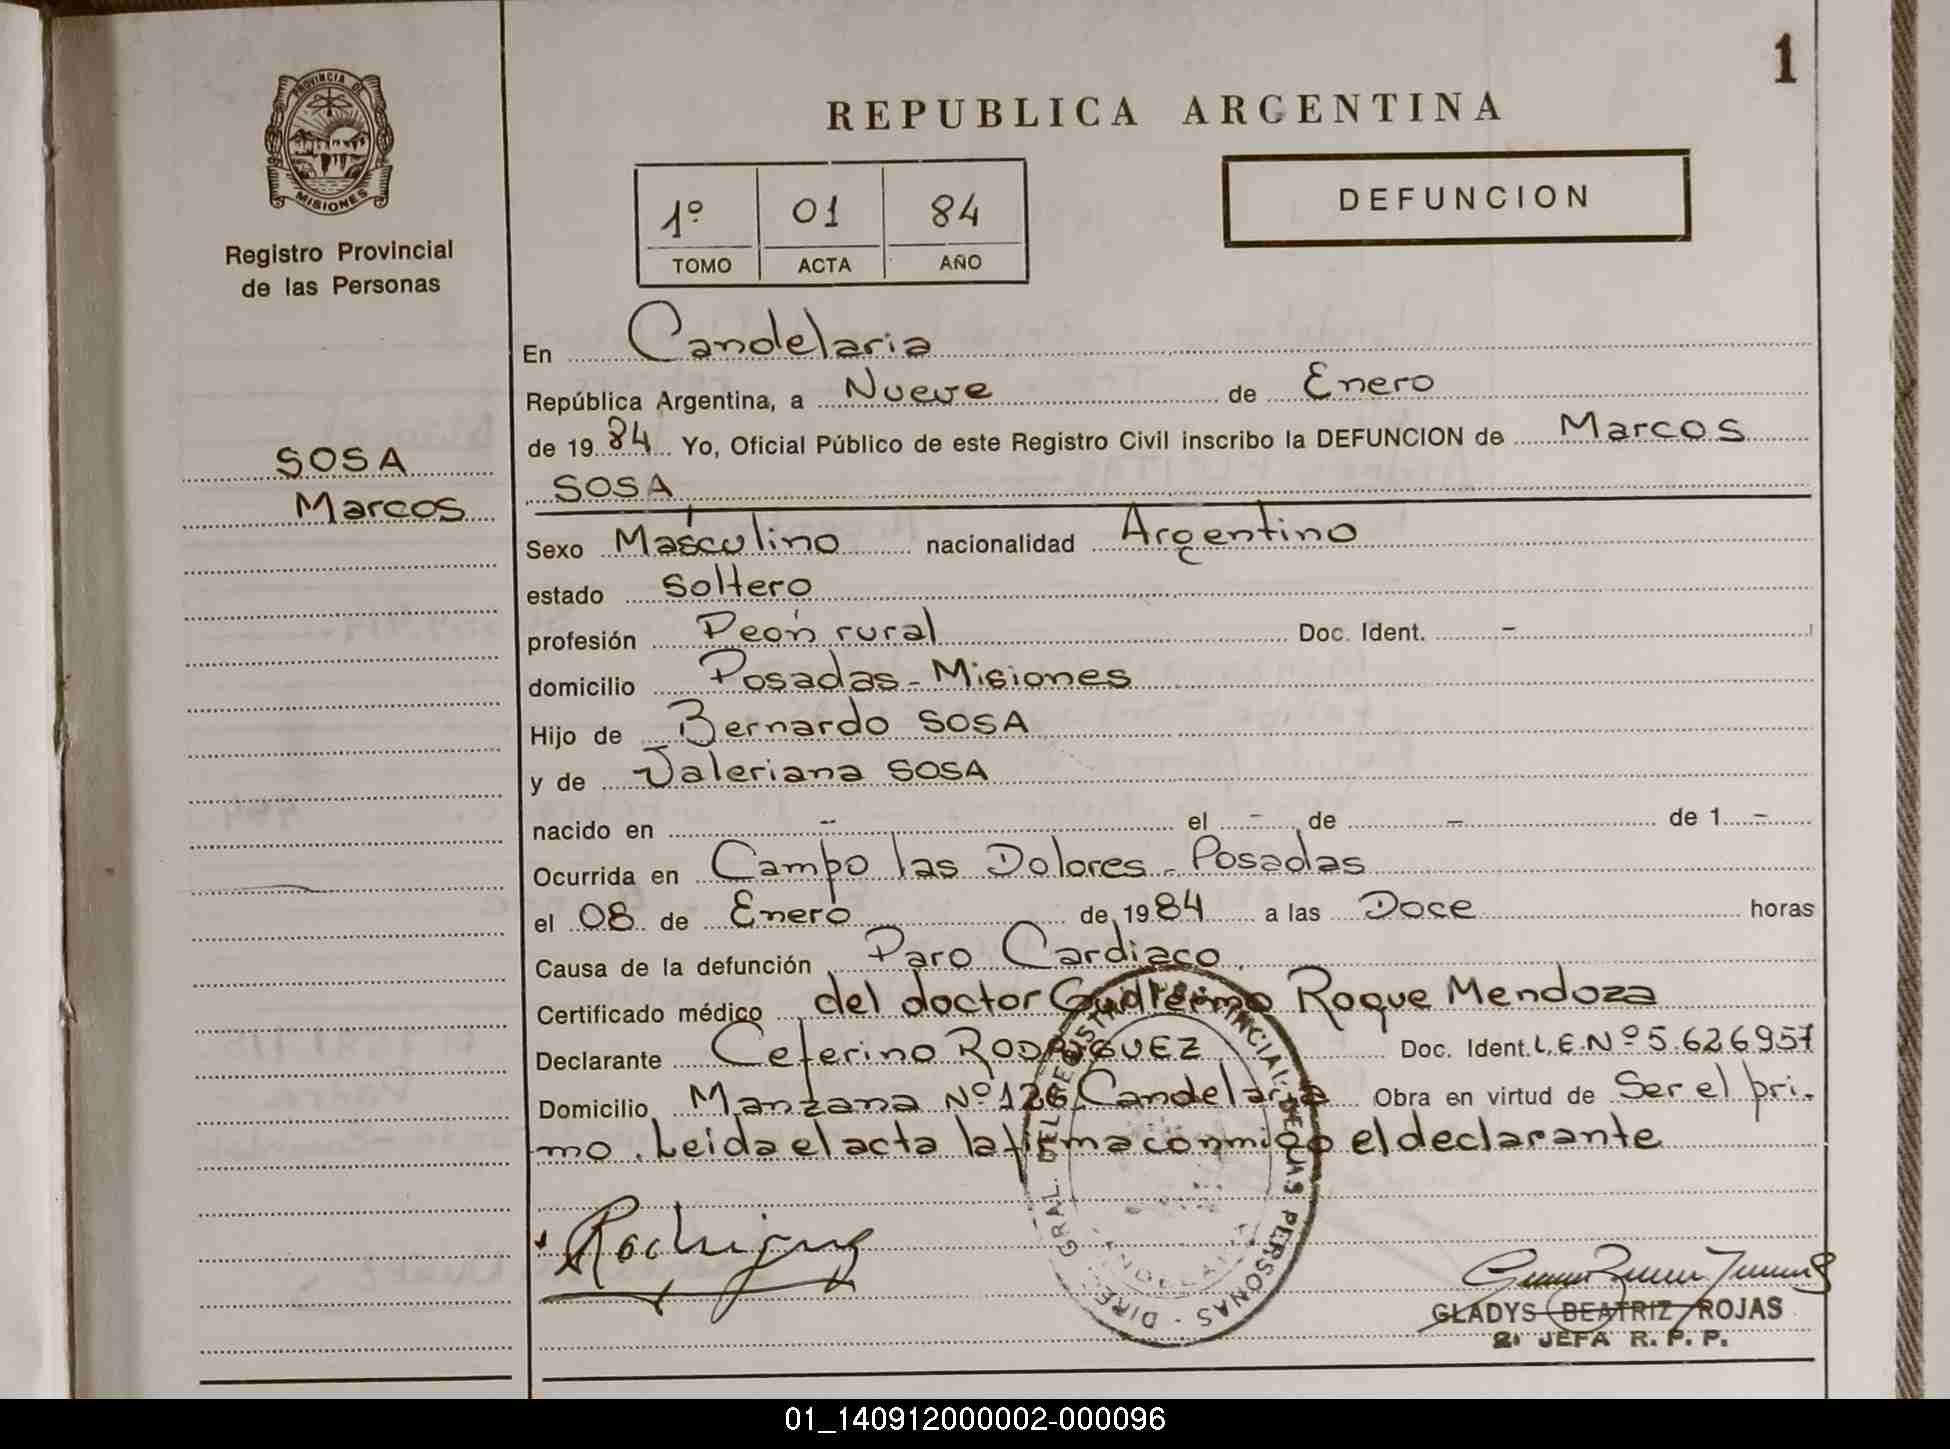 1
PROVINCIA DE
MISIONES
Registro Provincial
de las Personas
SOSA
Marcos
REPUBLICA ARGENTINA
1º 01 84
TOMO ACTA AÑO
DEFUNCION
En Candelaria
República Argentina, a Nueve de Enero
de 1984 Yo, Oficial Público de este Registro Civil inscribo la DEFUNCION de Marcos
SOSA
Sexo Masculino nacionalidad Argentino
estado Soltero
profesión Peón rural Doc. Ident. -
domicilio Posadas - Misiones
Hijo de Bernardo SOSA
y de Valeriana SOSA
nacido en - el - de - de 1 -
Ocurrida en Campo las Dolores - Posadas
el 08 de Enero de 1984 a las Doce horas
Causa de la defunción Paro Cardiaco
Certificado médico del doctor Guillermo Roque Mendoza
Declarante Ceferino RODRIGUEZ Doc. Ident. L.E.Nº 5.626957
Domicilio Manzana Nº 126 Candelaria Obra en virtud de Ser el pri-
mo. Leida el acta la firma conmigo el declarante
Rodriguez
DIREC. GRAL. DEL REGISTRO PROVINCIAL DE LAS PERSONAS -
GLADYS BEATRIZ ROJAS
2ª JEFA R. P. P.
01_140912000002-000096